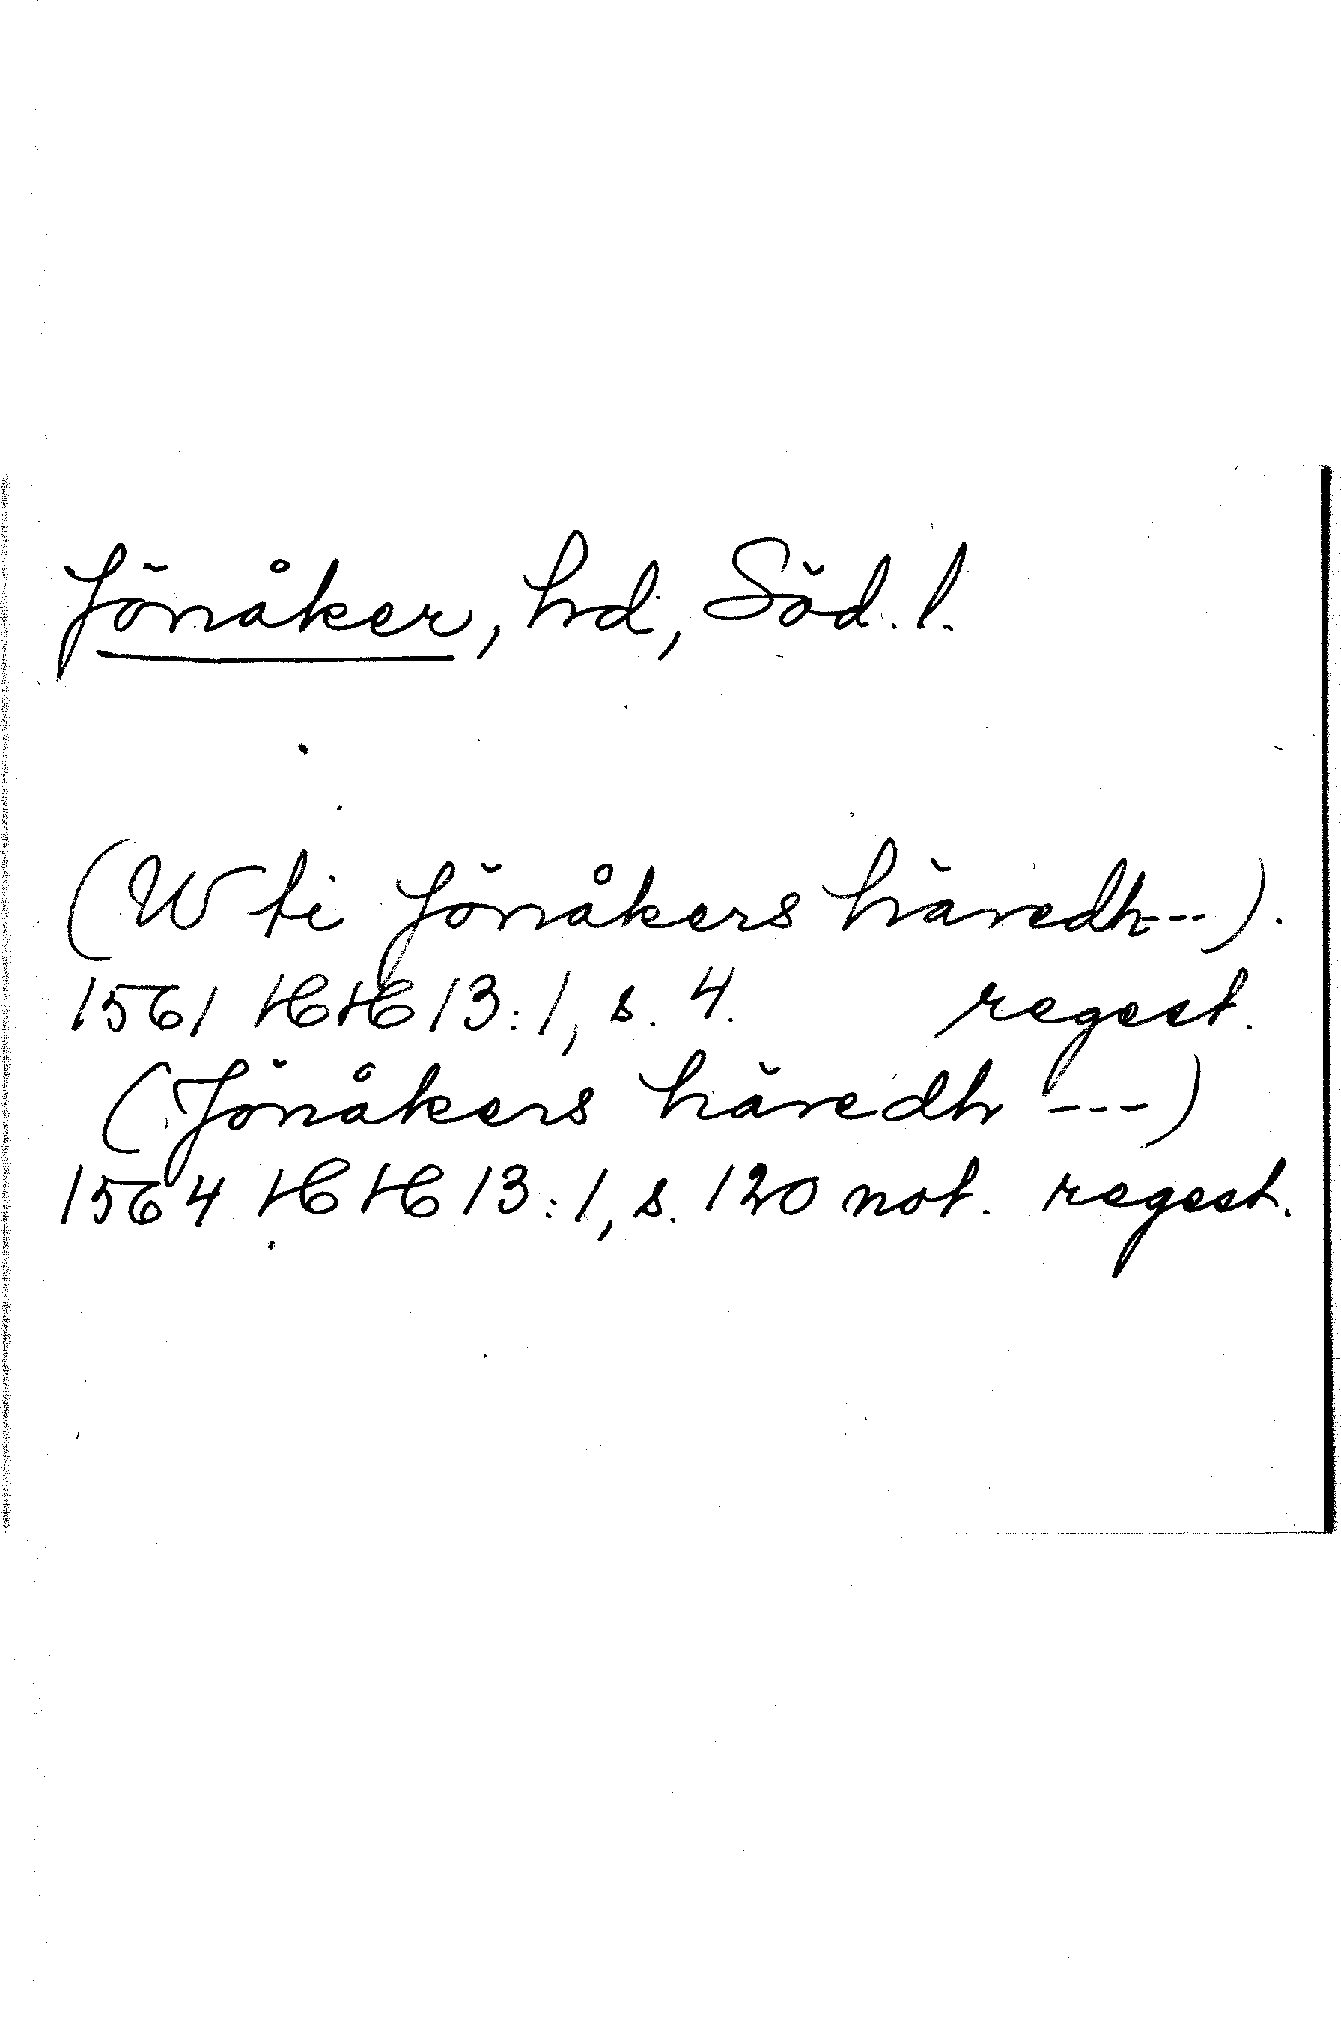 Jönåker, hd, Söd. l.
(W ti Jönåkers häredh---).
1561 HH 13:1, s. 4. regest.
(Jönåkers häredh ---)
1564 HH 13:1, s. 120 not. regest.